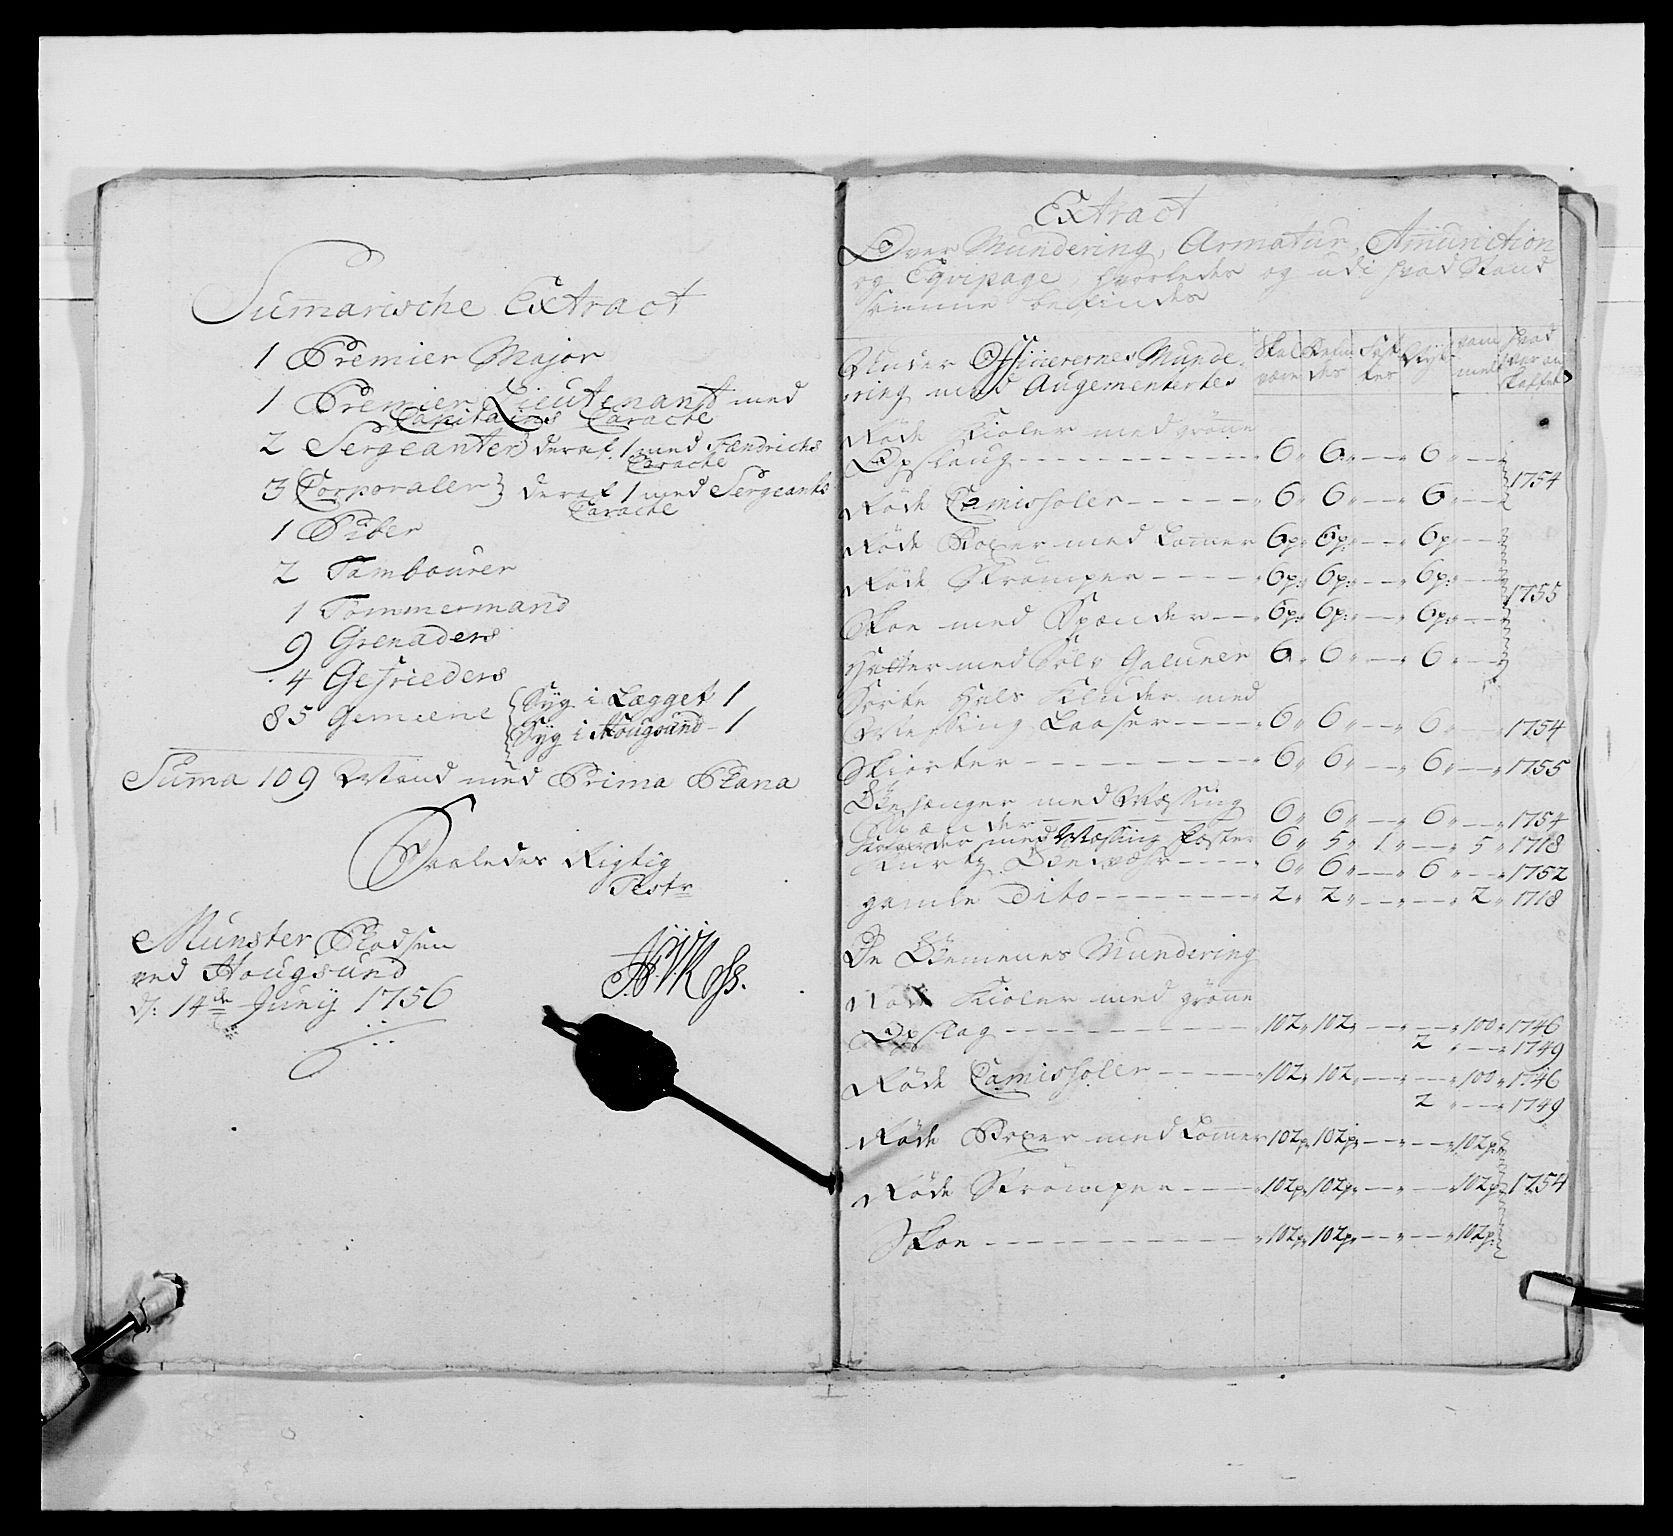 Sumarische Extract
1 Premier Major
1 Premier Lieutenant med
Capitains Carache
2 Sergeanter deraf 1 med Fendrichs
Carache
3 Corporaler deraf 1 med Sergeants
Carache
1 Piber
2 Tambourer
1 Tømmermand
9 Grenaders
4 Gefrieders
85 Gemeene Syg i Lægget 1
Syg i Hougsund - 1
Suma 109 Mand med Prima Plana
Saaledes Rigtig
Test
Münster Pladsen
ved Hougsund
d: 14de Junij 1756
Extract
Over Mundering, Armatur, Amunition
og Eqvipage, hvorledes og udi hvad Stand
samme befindes
Under Officerernes Munde-
ring med Augementertes
Skal være
Befindes
Fattes
Nÿt
gammelt
hvad Aar anskaffet
Røde Kioler med grønne
Opslaug 6 6 6
1754
Røde Camisholer 6 6 6
Røde Boxer med Lommer 6p 6p 6p
Røde Strømper 6p: 6p: 6p:
1755
Skoe med Spænder 6p: 6p: 6p:
Hatter med Sølv Galuner 6 6 6
Sorte Hals Kluder med
Messing Laaser 6 6 6 1754
Skiorter 6 6 6 1755
med Messing
Spænder 6 6 6 1754
med Messing Fæster 6 5 1 5 1718
6 6 6 1752
gamle Dito 2 2 2 1718
De Gemenes Mundering
Røde Kioler med grønne
Opslag 102 102 100 1746
2 1749
Røde Camisholer 102 102 100 1746
2 1749
Røde Boxer med Lommer 102p 102p 102p
Røde Strømper 102p 102p 102p 1754
Skoe 102p 102p 102p: